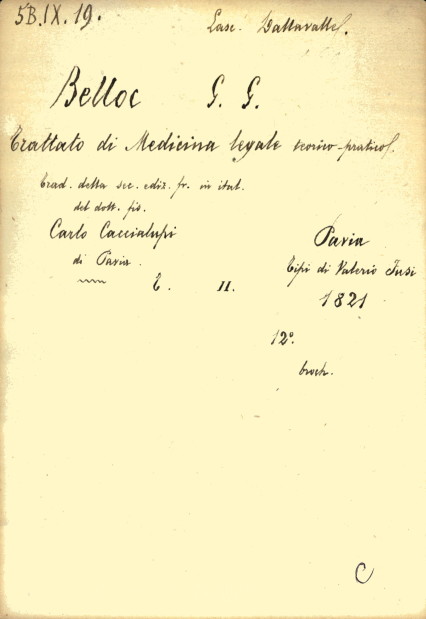 5B.IX.19.
Lasc. Dallavalle.
Belloc G. G.
Trattato di Medicina legale teorico-pratico.
Trad. della sec. ediz. fr. in ital.
del dott. fis.
Carlo Caccialupi
di Pavia.
T. II.
Pavia
Tipi di Valerio Fusi
1821
12º.
broch.
C